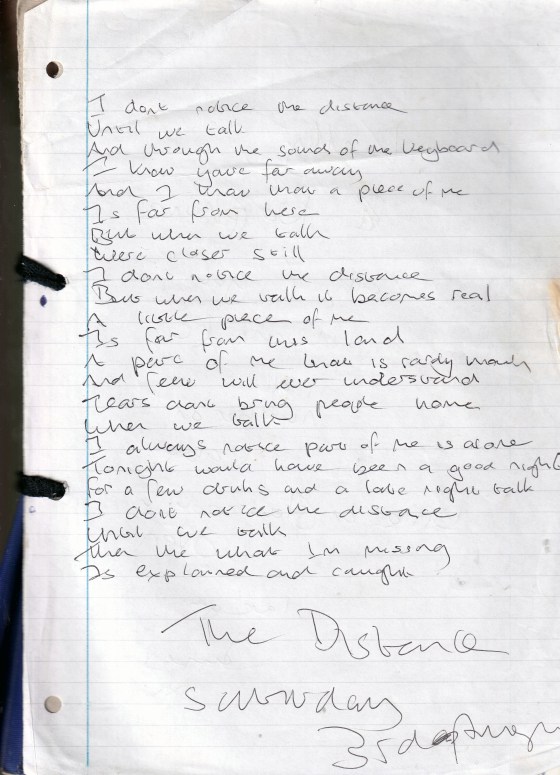 I dont notice the distance
Until we talk
And through the sound of the keyboard
I know youre far away
And I know that a piece of me
Is far from here
But when we talk
Were closer still
I dont notice the distance
But when we talk it becomes real
A little piece of me
Is far from this land
A part of me that is rarely
And few will ever understand
Tears dont bring people home
When we talk
I always notice part of me is alone
Tonight would have been a good night
For a few drinks and a late night talk
I dont notice the distance
Until we talk
Then the what Im missing
Is explained and caught
The Distance
Saturday
3rd